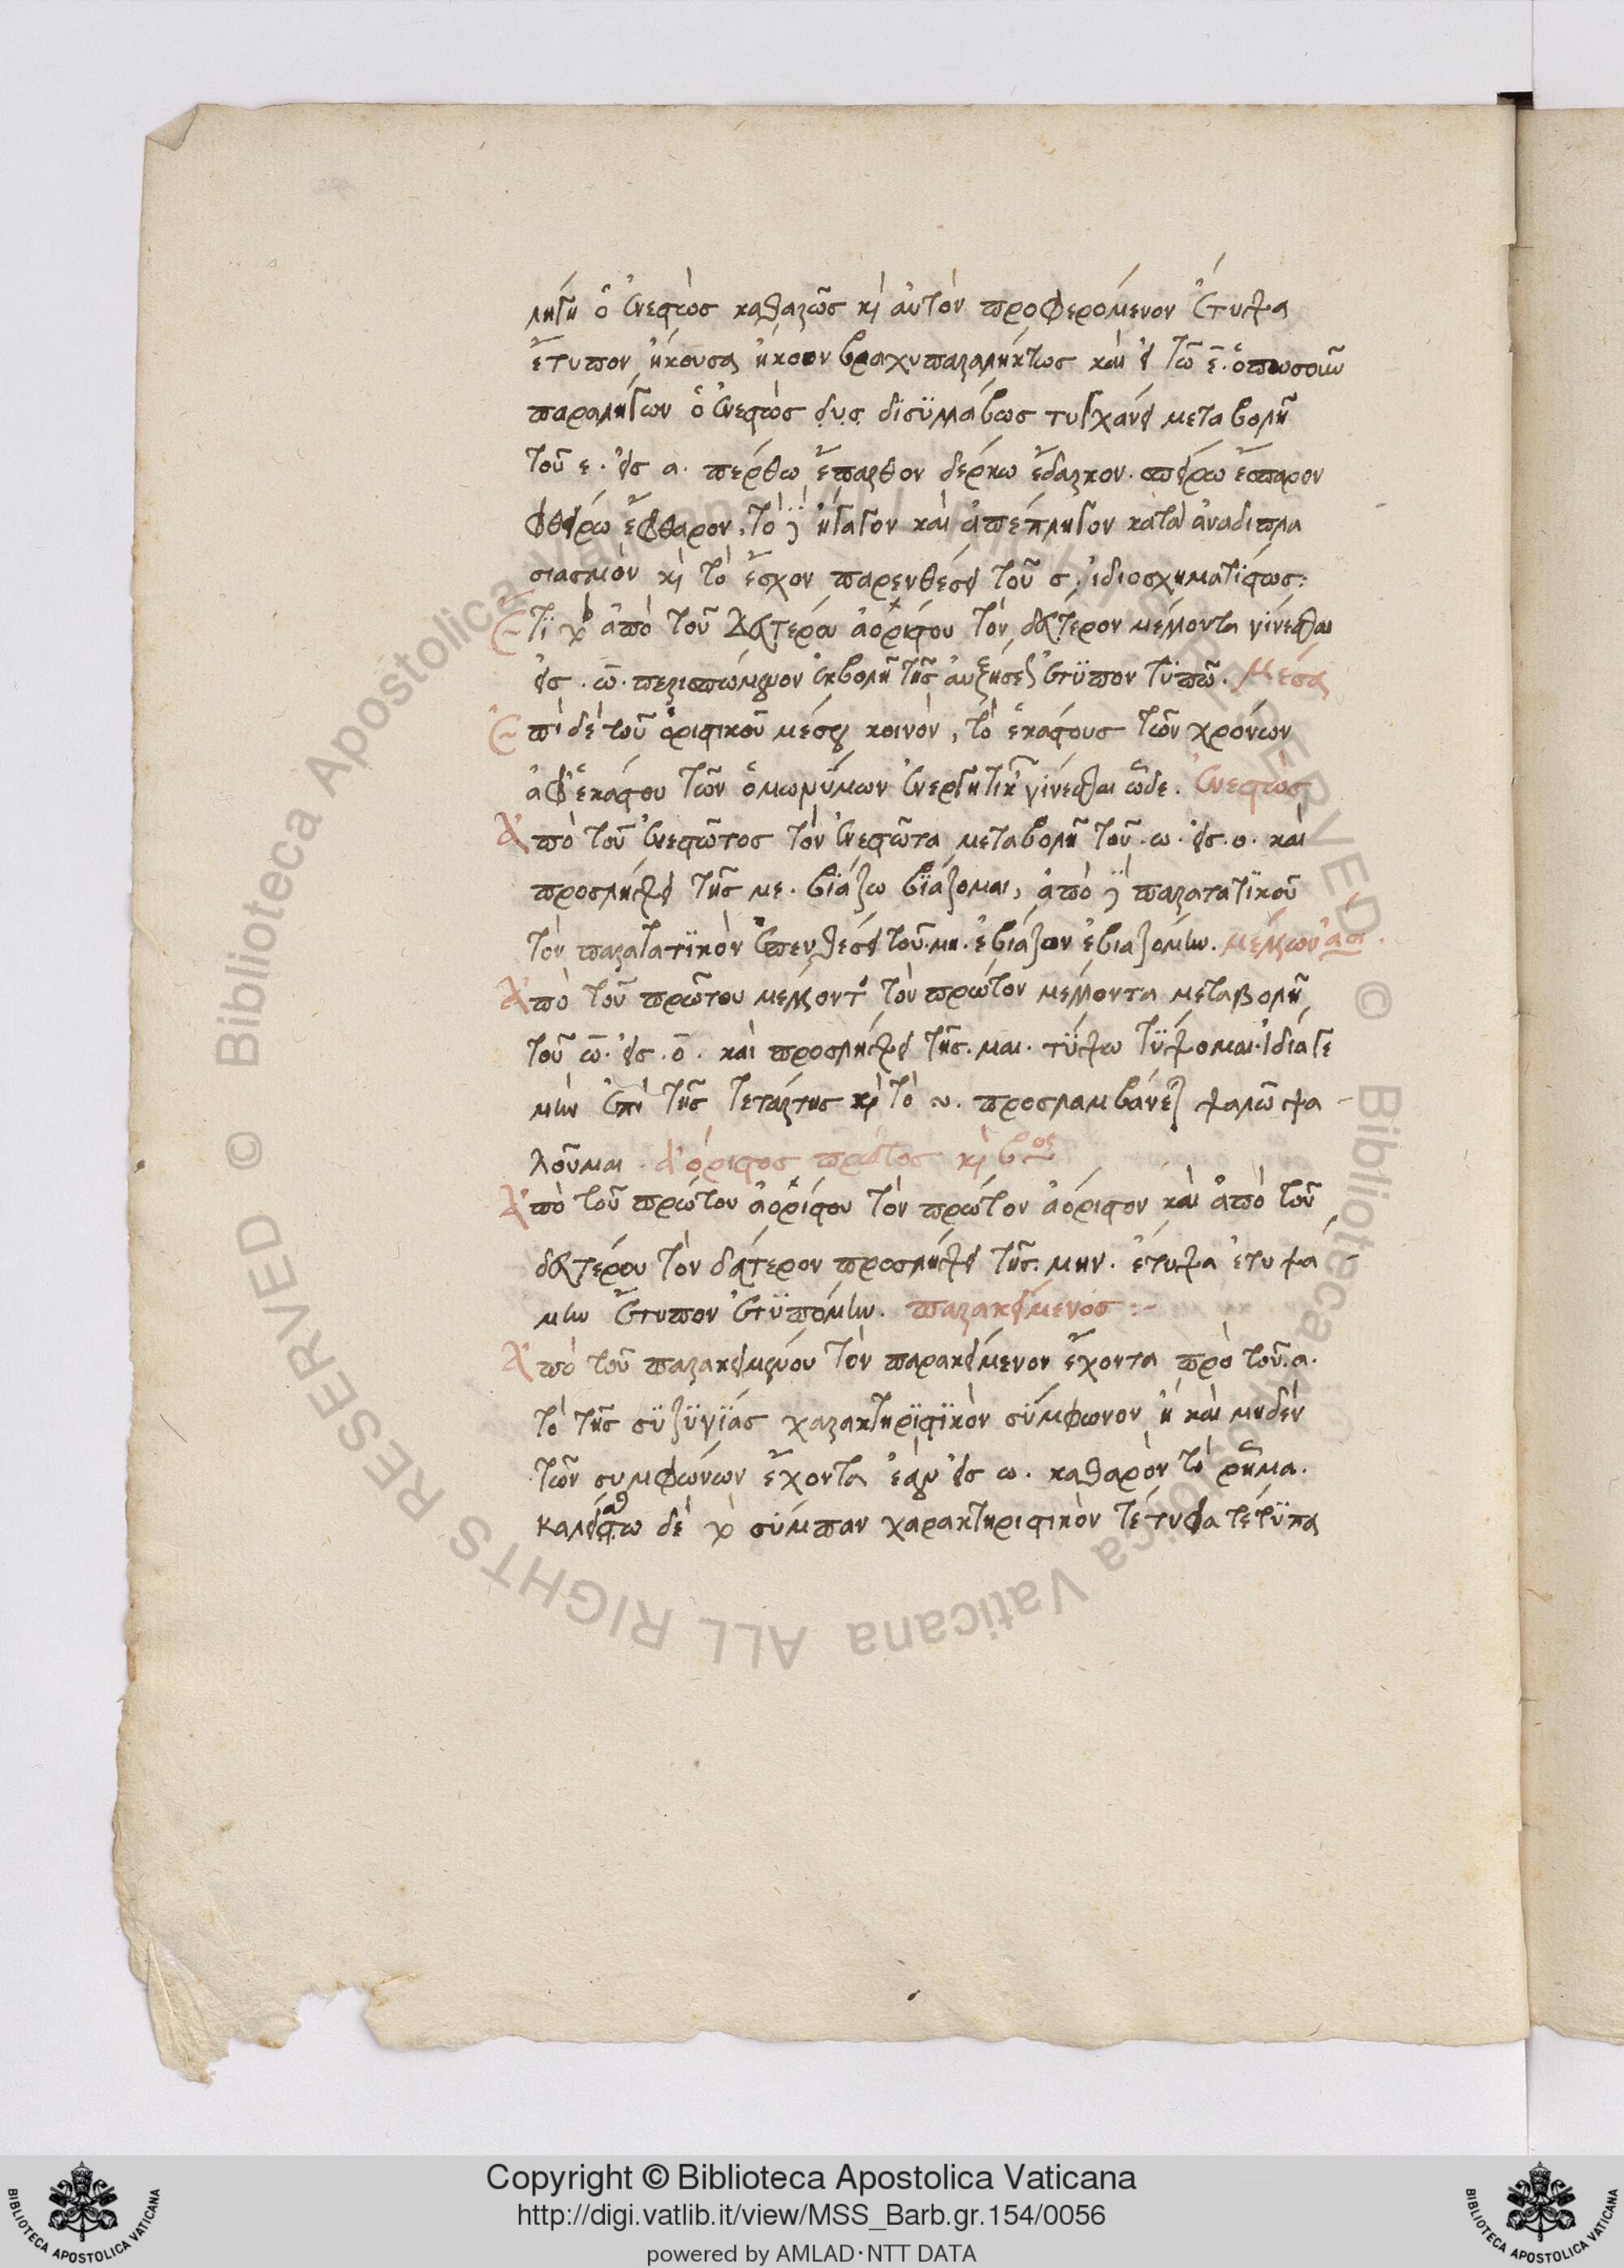 λήγῃ ὁ ἐνεστὼς καθαρῶς καὶ αὐτὸν προφερόμενον ἔτυψα
ἔτυπον ἤκουσα ἤκοον βραχυπαραλήκτως καὶ εἰ τῶ ε̄. ὁπωσοῦν
παραλήγων ὁ ἐνεστὼς δισϋλλάβως τυγχάνει μεταβολῇ
τοῦ ε. εἰς α. πέρθω ἔπαρθον δέρκω ἔδαρκον. σπείρω ἔσπαρον
φθείρω ἔφθαρον. τὸ ἤγαγον καὶ ἀπέπληγον κατὰ ἀναδιπλα
σιασμὸν καὶ τὸ ἔσχον παρενθέσει τοῦ σ. ἰδιοσχηματίστως:
Ἔτι ἀπὸ τοῦ δευτέρου ἀορίστου τὸν δεύτερον μέλλοντα γίνεσθαι
εἰς. ῶ. περισπώμενον ἐκβολῇ τῆς αὐξήσεως ἔτϋπον τϋπῶ. Μέσα
Ἐπὶ δὲ τοῦ ὁριστικοῦ μέσου κοινὸν, τὸ ἑκάστους τῶν χρόνων
ἀφ' ἑκάστου τῶν ὁμωνύμων ἐνεργητικῶν γίνεσθαι ὧδε. Ἐνεστὼς
Ἀπὸ τοῦ ἐνεστῶτος τὸν ἐνεστῶτα μεταβολῇ τοῦ. ω. εἰς. ο. καὶ
προσλήψει τῆς με. βϊάζω βϊάζομαι, ἀπὸ παρατατϊκοῦ
τὸν παρατατϊκὸν ἐπενθέσει τοῦ. μη. ἐβίαζον ἐβιαζόμην. μέλλων
Ἀπὸ τοῦ πρώτου μέλλοντος τὸν πρῶτον μέλλοντα μεταβολῇ
τοῦ ω̄. εἰς. ο̄. καὶ προσλήψει τῆς. μαι. τύψω τύψομαι. ἰδίᾳ γε
μὴν ἐπὶ τῆς τετάρτης καὶ τὸ υ. προσλαμβάνει ψαλῶ ψα-
λοῦμαι. ἀόριστος πρῶτος καὶ βος
Ἀπὸ τοῦ πρώτου ἀορίστου τὸν πρῶτον ἀόριστον καὶ ἀπὸ τοῦ
δευτέρου τὸν δεύτερον προσλήψει τῆς. μην. ἔτυψα ἐτυψά-
μην ἔτυπον ἐτϋπόμην. παρακείμενος:-
Ἀπὸ τοῦ παρακειμένου τὸν παρακείμενον ἔχοντα πρὸ τοῦ. α.
τὸ τῆς σϋζϋγϊας χαρακτηρϊστϊκὸν σύμφωνον ἢ καὶ μηδὲν
τῶν συμφώνων ἔχοντα ἐὰν εἰς ω. καθαρὸν τὸ ῥῆμα.
καλείσθω δὲ σύμπαν χαρακτηριστικὸν τέτυφα τέτϋπα
Copyright © Biblioteca Apostolica Vaticana
http://digi.vatlib.it/view/MSS_Barb.gr.154/0056
powered by AMLAD·NTT DATA